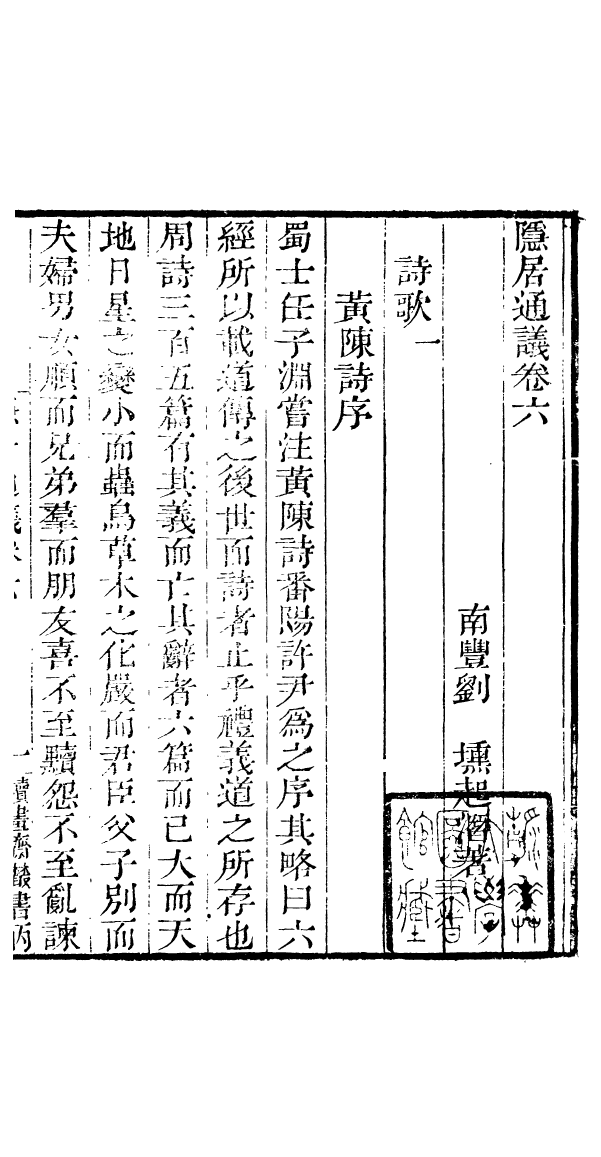 隱居通議卷六
南豐劉 壎起潛著
詩歌一
黃陳詩序
蜀士任子淵嘗注黃陳詩番陽許尹爲之序其略曰六
經所以載道傳之後世而詩者止乎禮義道之所存也
周詩三百五篇有其義而亡其辭者六篇而已大而天
地日星之變小而蟲鳥草木之化嚴而君臣父子別而
夫婦男女順而兄弟羣而朋友喜不至黷怨不至亂諫
一 讀畫齋叢書丙